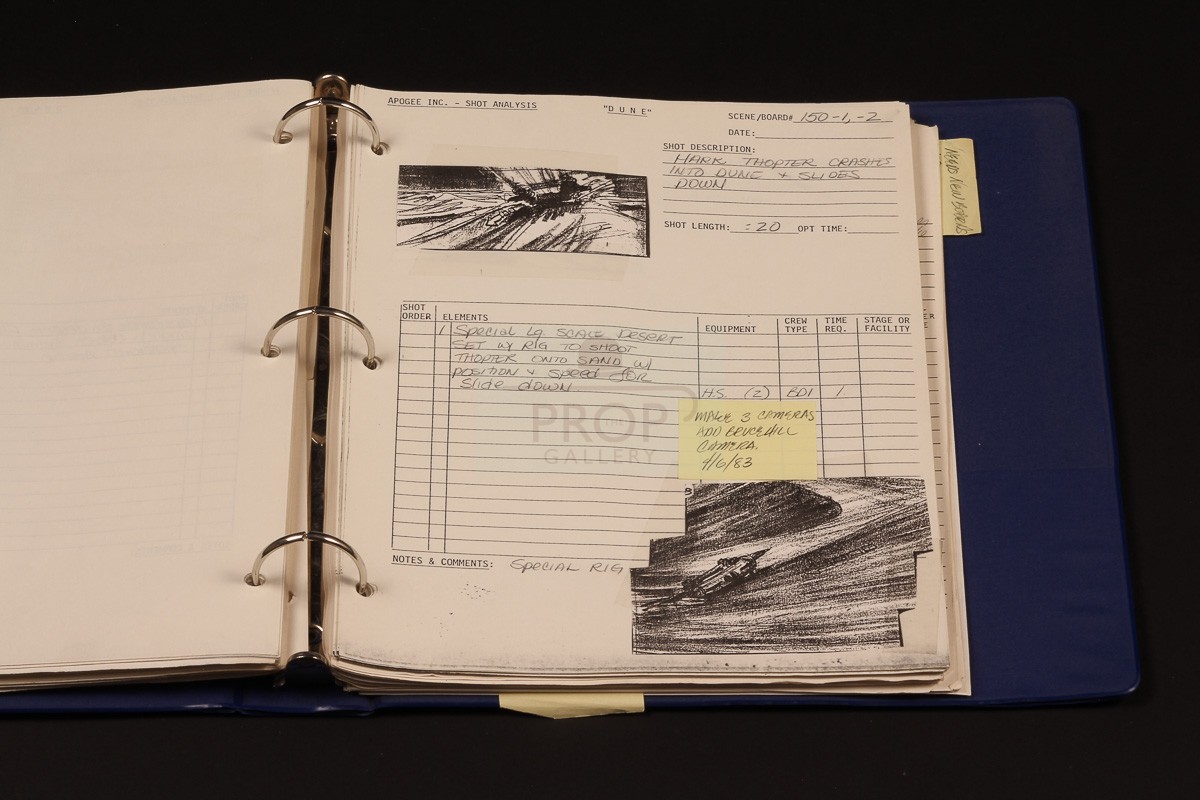 APOGEE INC. - SHOT ANALYSIS
"D U N E"
SCENE/BOARD# 150-1,-2
DATE:
SHOT DESCRIPTION:
HARK THOPTER CRASHES
INTO DUNE & SLIDES
DOWN
SHOT LENGTH: :20 OPT TIME:
NEED NEW BOARDS
SHOT ORDER
ELEMENTS
EQUIPMENT
CREW TYPE
TIME REQ.
STAGE OR FACILITY
1 Special Lg SCALE DESERT
SET W/ RIG TO SHOOT
THOPTER ONTO SAND W/
POSITION & Speed FOR
Slide down
H.S. (2) BD1 1
MAKE 3 CAMERAS
ADD BRUCE HILL
CAMERA.
4/6/83
THE
PROP
GALLERY
NOTES & COMMENTS: SPECIAL RIG